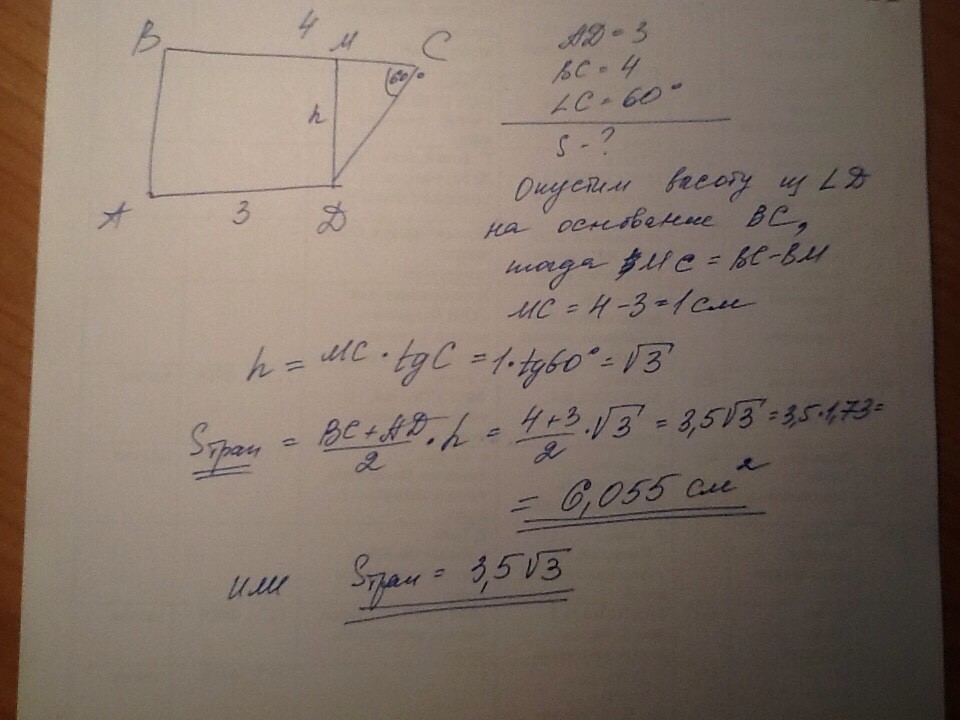 B 4 M C
60°
h
A 3 D
AD = 3
BC = 4
∠C = 60°
S - ?
Опустим высоту из ∠D
на основание BC,
тогда MC = BC - BM
MC = 4 - 3 = 1 см
h = MC · tg C = 1 · tg 60° = √3
Sтрап = (BC + AD)/2 · h = (4 + 3)/2 · √3 = 3,5√3 = 3,5 · 1,73 =
= 6,055 см²
или Sтрап = 3,5√3